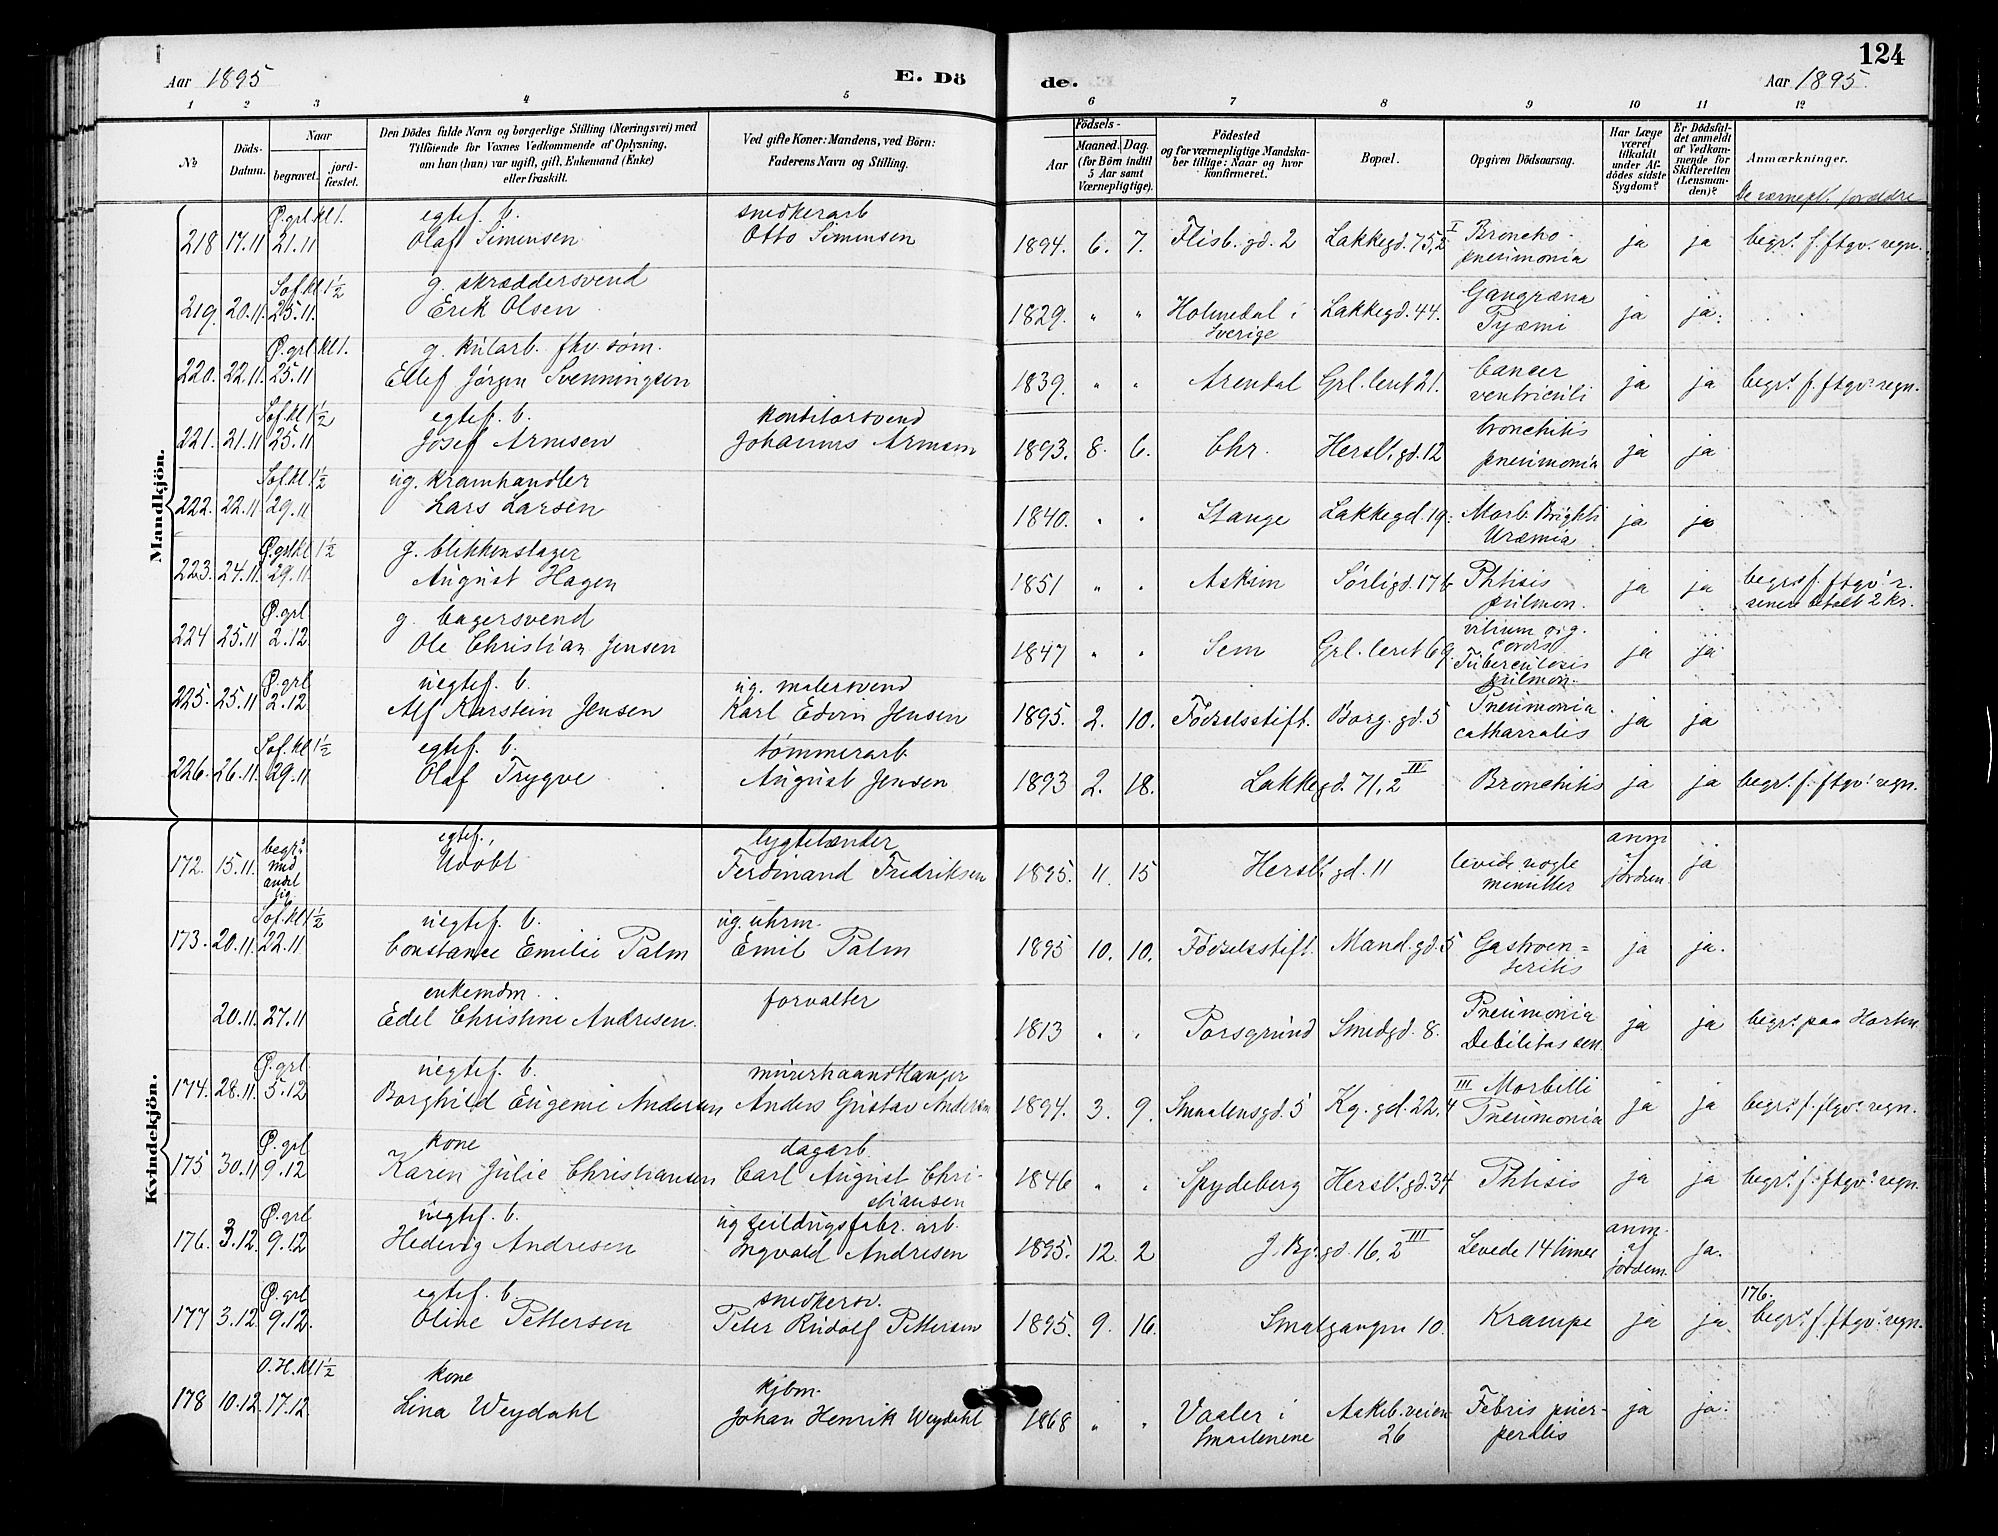 124
Aar 1895
E. Dö
de.
Aar 1895.
1 2 3 4 5 6 7 8 9 10 11 12
No
Döds-Datum.
Naar
begravet.
jord-fæstet.
Den Dödes fulde Navn og borgerlige Stilling (Næringsvei) med
Tilföiende for Voxnes Vedkommende af Oplysning,
om han (hun) var ugift, gift, Enkemand (Enke)
eller fraskilt.
Ved gifte Koner: Mandens, ved Börn:
Faderens Navn og Stilling.
Födsels-
Aar
Maaned. Dag.
(for Börn indtil
5 Aar samt
Værnepligtige).
Födested
og for værnepligtige Mandska-
ber tillige: Naar og hvor
konfirmeret.
Bopæl.
Opgiven Dödsaarsag.
Har Læge
været
tilkaldt
under Af-
dödes sidste
Sygdom?
Er Dödsfal-
det anmeldt
af Vedkom-
mende for
Skifteretten
(Lensman-
den)?
Anmærkninger.
De værnepl. forældre
Mandkjön.
Ø. grl kl 1. egtef. b. snedkerarb
218 17.11 21.11 Olaf Simensen Otto Simensen 1894. 6. 7. Flisb. gd. 2 Lakkegd. 75,2 I Broncho-pneumonia ja ja begr. f. ftgv. regn.
Sof. kl 1½ g. skræddersvend
219. 20.11. 25.11. Erik Olsen 1829. " " Holmedal i Sverige Lakkegd. 44. Gangræna Pyæmi ja ja.
Ø. grl kl 1. g. kularb. fhv. søm.
220. 22.11. 25.11 Ellef Jörgen Svenningsen 1839. " " Arendal Grl. leret 21. Cancer ventriculi ja ja begr. f. ftgv. regn.
Sof. kl 1½ egtef. b. konditorsvend
221. 21.11 25.11 Josef Arnesen Johannes Arnesen 1893. 8. 6. Chr. Hersl. gd. 12 bronchitis pneumonia ja ja
Sof. kl 1½ ug. kramhandler
222. 22.11 29.11 Lars Larsen 1840. " " Stange Lakkegd. 19. Morb. Brighti Uræmia ja ja
Ø. grl kl 1½ g. blikkenslager
223. 24.11. 29.11. August Hagen 1851 " " Askim Sörligd. 17b Phtisis pulmon. ja ja begr. f. ftgv. r. senere betalt 2 kr.
Ø. grl g. bagersvend
224 25.11 2.12 Ole Christian Jensen 1847 " " Sem Grl. leret 69. vitium org. cordis Tuberculosis pulmon. ja ja
Ø. grl uegtef. b. ug. malersvend
225. 25.11 2.12 Alf Karstein Jensen Karl Edvin Jensen 1895. 2. 10. Födselsstift. Borg. gd. 5 Pneumonia catharralis ja ja
Sof. kl 1½ egtef. b. tömmerarb
226. 26.11. 29.11 Olaf Trygve August Jensen 1893 2. 18. Lakkegd. 71, 2 III Bronchitis ja ja begr. f. ftgv. regn.
Kvindekjön.
egtef. lygtetænder
172. 15.11. begr. med andet lig Udöbt Ferdinand Fredriksen 1895. 11. 15 Hersl. gd. 11 levede nogle minutter anm af jordem. ja
Sof. kl 1½ uegtef. b. ug. uhrm.
173. 20.11. 22.11 Constance Emilie Palm Emil Palm 1895 10. 10. Födselsstift. Mand. gd. 5 Gastroen=teritis ja ja.
enkemdm. forvalter
20.11. 27.11 Edel Christine Andresen. 1813 " " Porsgrund Smedgd. 8. Pneumonia Debilitas sen. ja ja begr. paa Horten
Ø. grl. uegtef. b. murerhaandlanger
174. 28.11. 5.12 Borghild Eugenie Andersen Anders Gustav Andersen 1894. 3. 9. Smaalensgd. 5 Kg. gd. 22,4 III Morbilli Pneumonia ja ja begr. f. ftgv. regn.
Ø. grl kone dagarb.
175 30.11 9.12 Karen Julie Christiansen Carl August Chri-stiansen 1846 " " Spydeberg Hersl. gd. 34 Phtisis ja ja begr. f. ftgv. regn.
Ø. grl uegtef. b. ug seildugsfabr. arb.
176. 3.12. 9.12 Hedevig Andresen Ingvald Andresen 1895. 12. 2 J. Bj. gd. 16, 2 III Levede 14 timer anm. af jordem. ja.
Ø. grl egtef. b. snedkersv.
177 3.12. 9.12. Oline Pettersen Peter Rudolf Pettersen 1895. 9. 16. Smalgangen 10. Krampe ja ja. 176. begr. f. ftgv. regn.
O. H. kl 1½ kone kjbm.
178 10.12. 17.12. Lina Weydahl Johan Henrik Weydahl 1868 " " Vaaler i Smaalenene Aakeb. veien 26 Febris puer-peralis ja ja.